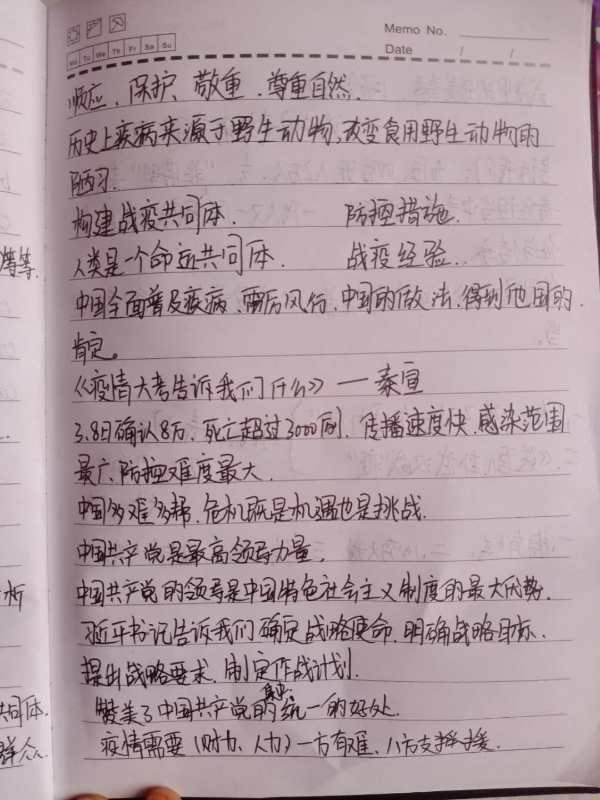 Memo No.
Mo Tu We Th Fr Sa Su
Date / /
顺应、保护、敬重、尊重自然.
历史上疾病来源于野生动物,改变食用野生动物的
陋习.
构建战疫共同体. 防控措施.
等等.
人类是一个命运共同体. 战疫经验.
中国全面普及疫病,雷厉风行,中国的做法,得到他国的
肯定。
《疫情大考告诉我们什么》—秦宣
3.8日确认8万,死亡超过3000例,传播速度快,感染范围
最广,防控难度最大.
中国多难多帮,危机既是机遇也是挑战.
中国共产党是最高领导力量,
中国共产党的领导是中国特色社会主义制度的最大优势.
析
习近平书记告诉我们确定战略使命,明确战略目标.
提出战略要求,制定作战计划.
共同体.
赞美了中国共产党的统一的好处.
群众.
疫情需要(财力、人力)一方有难、八方支援.